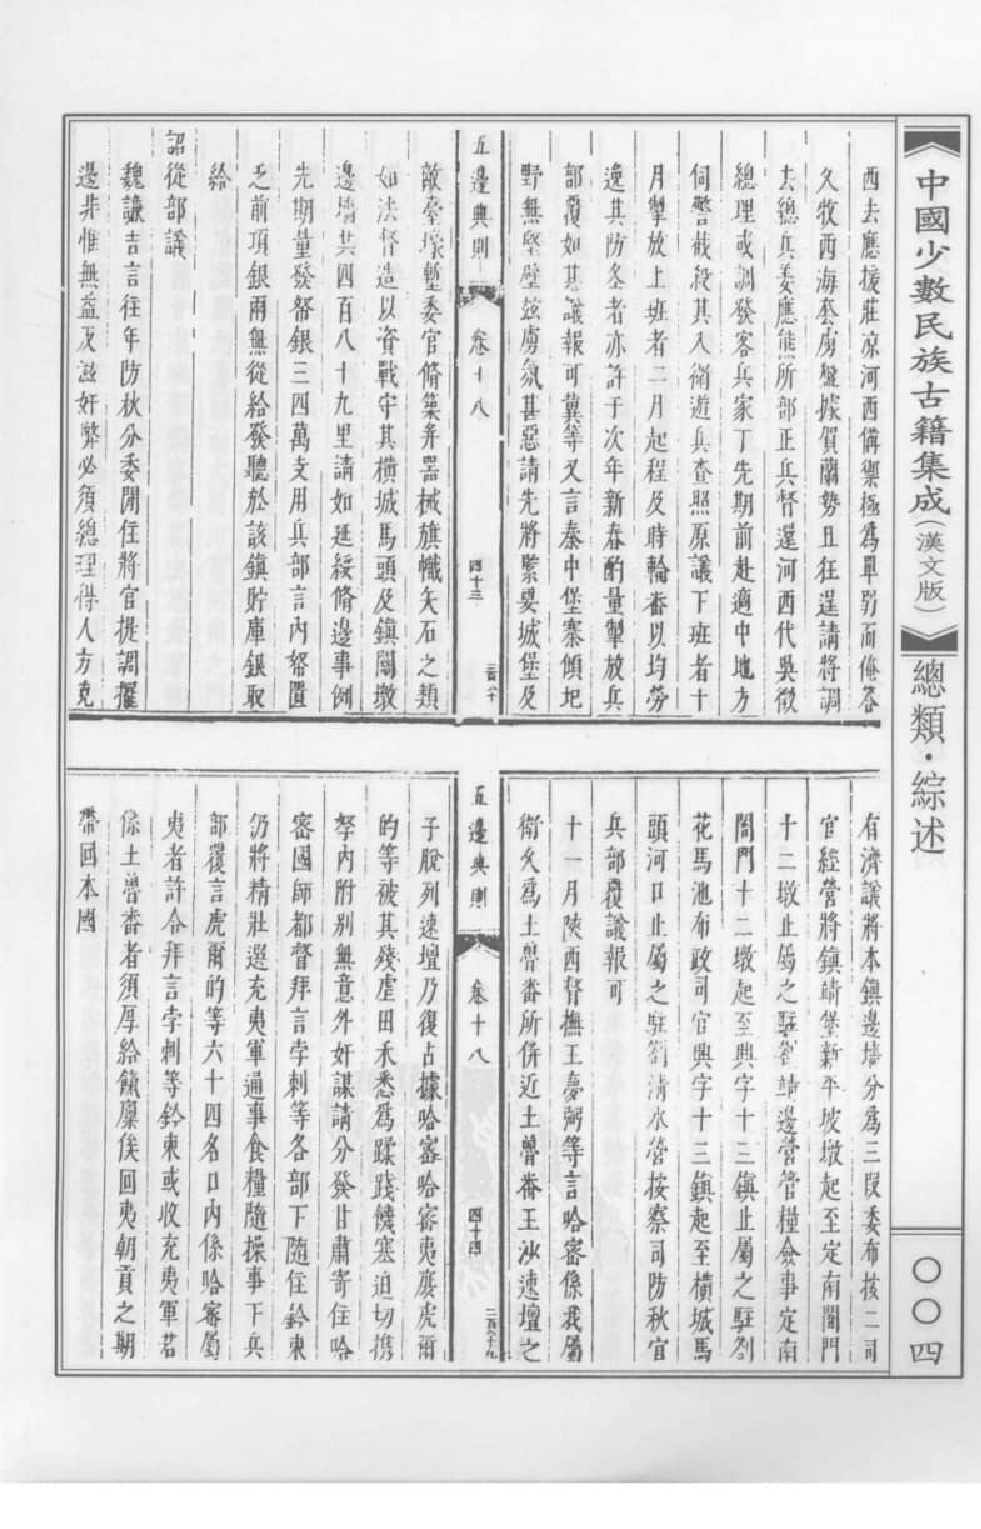 中國少數民族古籍集成（漢文版）
總類·綜述
〇〇四
西去應援莊凉河西備禦極爲單弱而俺答
久牧西海套虜盤據賀蘭勢且狂逞請將調
去總兵姜應熊所部正兵督還河西代吳徵
總理或調發客兵家丁先期前赴適中地方
伺警截殺其入衛遊兵查照原議下班者十
月掣放上班者二月起程及時輪番以均勞
逸其防冬者亦許于次年新春酌量掣放兵
部覆如其議報可冀等又言秦中堡寨傾圮
野無堅壁茲虜氛甚惡請先將緊要城堡及
五邊典則
卷十八
四十三
敵臺壕塹委官脩築并器械旗幟矢石之類
如法督造以資戰守其橫城馬頭及鎮關墩
邊墻共四百八十九里請如延綏脩邊事例
先期量發帑銀三四萬支用兵部言內帑置
乏前項銀兩無從給發聽於該鎮貯庫銀取
給
詔從部議
魏謙吉言往年防秋分委閒住將官提調擺
邊非惟無益及滋奸弊必須總理得人方克
有濟議將本鎮邊墻分爲三叚委布按二司
官經營將鎮靖堡新平坡墩起至定南閘門
十二墩止屬之駐劄靖邊營管糧僉事定南
閘門十二墩起至興字十三鎮止屬之駐劄
花馬池布政司官興字十三鎮起至橫城馬
頭河口止屬之駐劄清水營按察司防秋官
兵部覆議報可
十一月陝西督撫王夢弼等言哈密係我屬
衛久爲土魯番所併近土魯番王沙速壇之
五邊典則
卷十八
四十四
子脫列速壇乃復占據哈密哈密夷廣虎爾
的等被其殘虐田禾悉爲蹂踐饑寒迫切携
孥內附別無意外奸謀請分發甘肅寄住哈
密國師都督拜言孛剌等各部下隨住鈐束
仍將精壯選充夷軍通事食糧隨操事下兵
部覆言虎爾的等六十四名口內係哈密屬
夷者許令拜言孛剌等鈐束或收充夷軍若
係土魯番者須厚給餼廩俟回夷朝貢之期
帶回本國